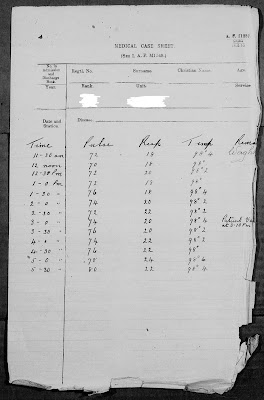 A. F. I1220
MEDICAL CASE SHEET.
No. in Admission and Discharge Book.
Regtl. No.
Surname
Christian Name
Age
Year
Rank.
Unit.
Service
Date and Station
Disease
Time Pulse Resp Temp
11-30 am 72 19 98.4
12 noon 70 18 98.
12-30 Pm 72 20 98.2
1-0 Pm 72 18 98.
1-30 " 76 18 98.4
2-0 " 74 20 98.2
2-30 " 72 22 98.2
3-0 " 74 20 98.4
3-30 " 76 20 98.2
4-0 " 74 22 98.2
4-30 " 76 22 98.
5-0 " 78 24 98.4
5-30 " 80 22 98.4